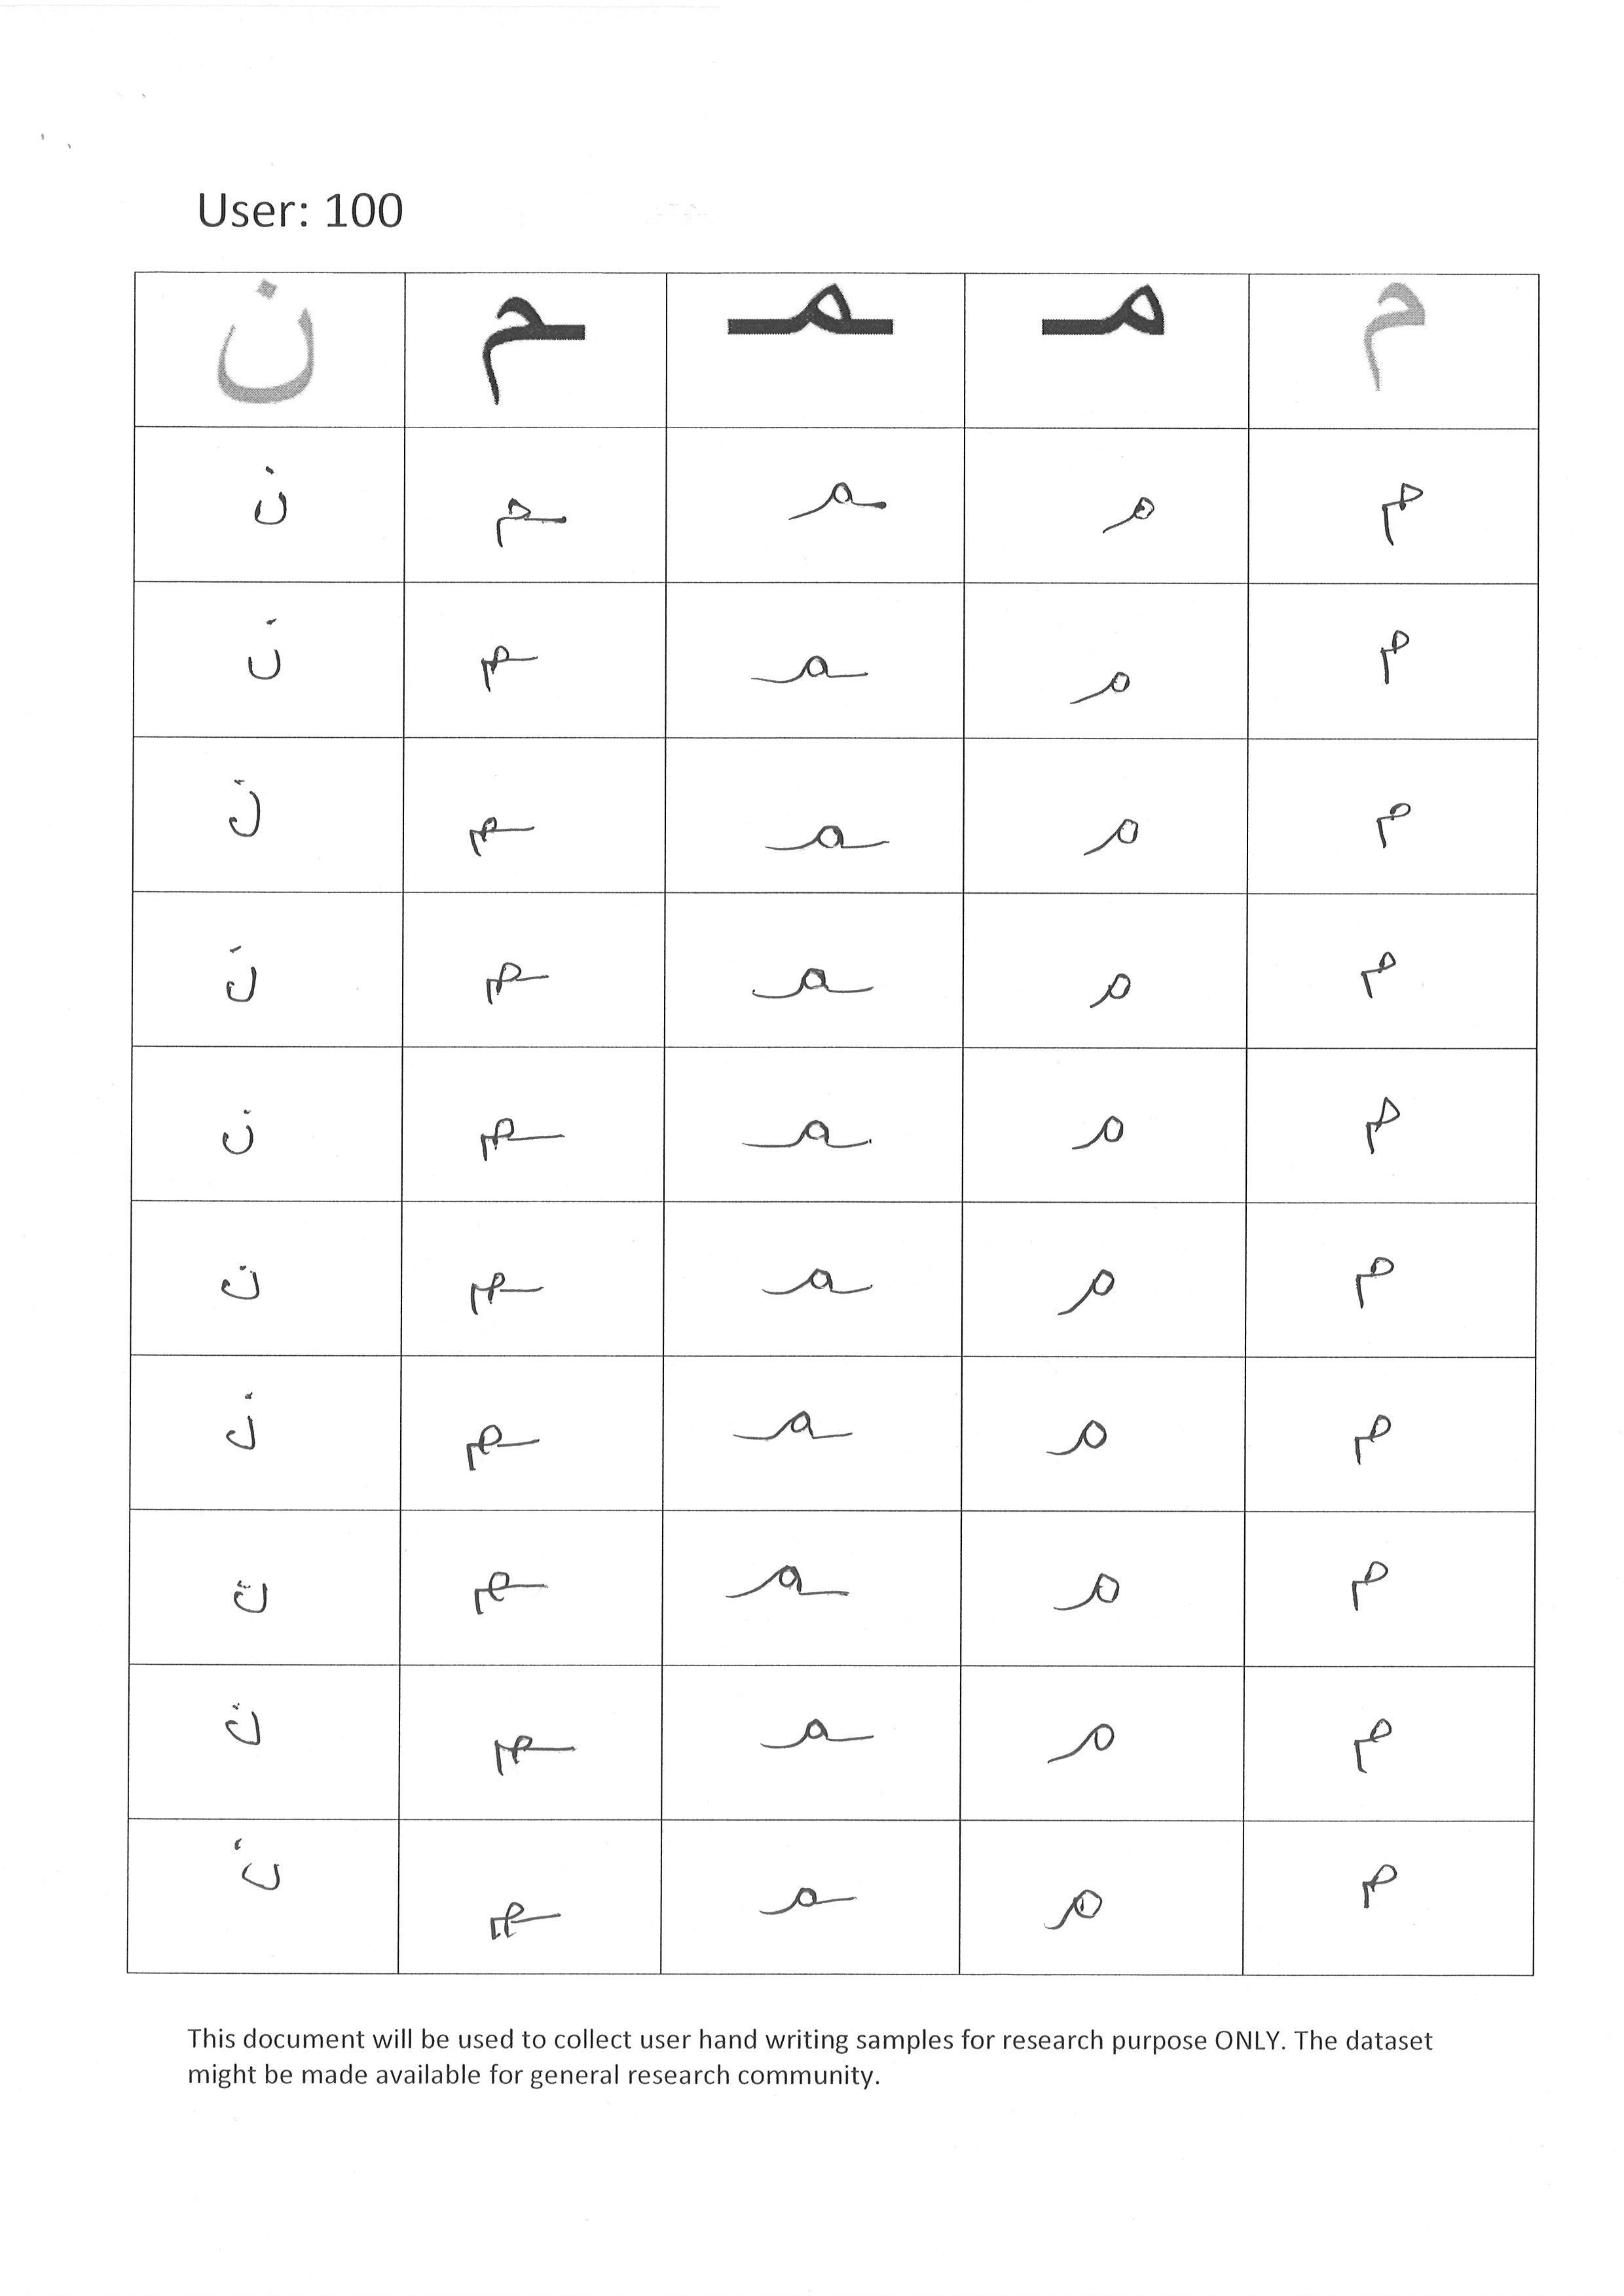 User: 100
م مـ ـمـ ـم ن
م مـ ـمـ ـم ن
م مـ ـمـ ـم ن
م مـ ـمـ ـم ن
م مـ ـمـ ـم ن
م مـ ـمـ ـم ن
م مـ ـمـ ـم ن
م مـ ـمـ ـم ن
م مـ ـمـ ـم ن
م مـ ـمـ ـم ن
م مـ ـمـ ـم ن
This document will be used to collect user hand writing samples for research purpose ONLY. The dataset
might be made available for general research community.